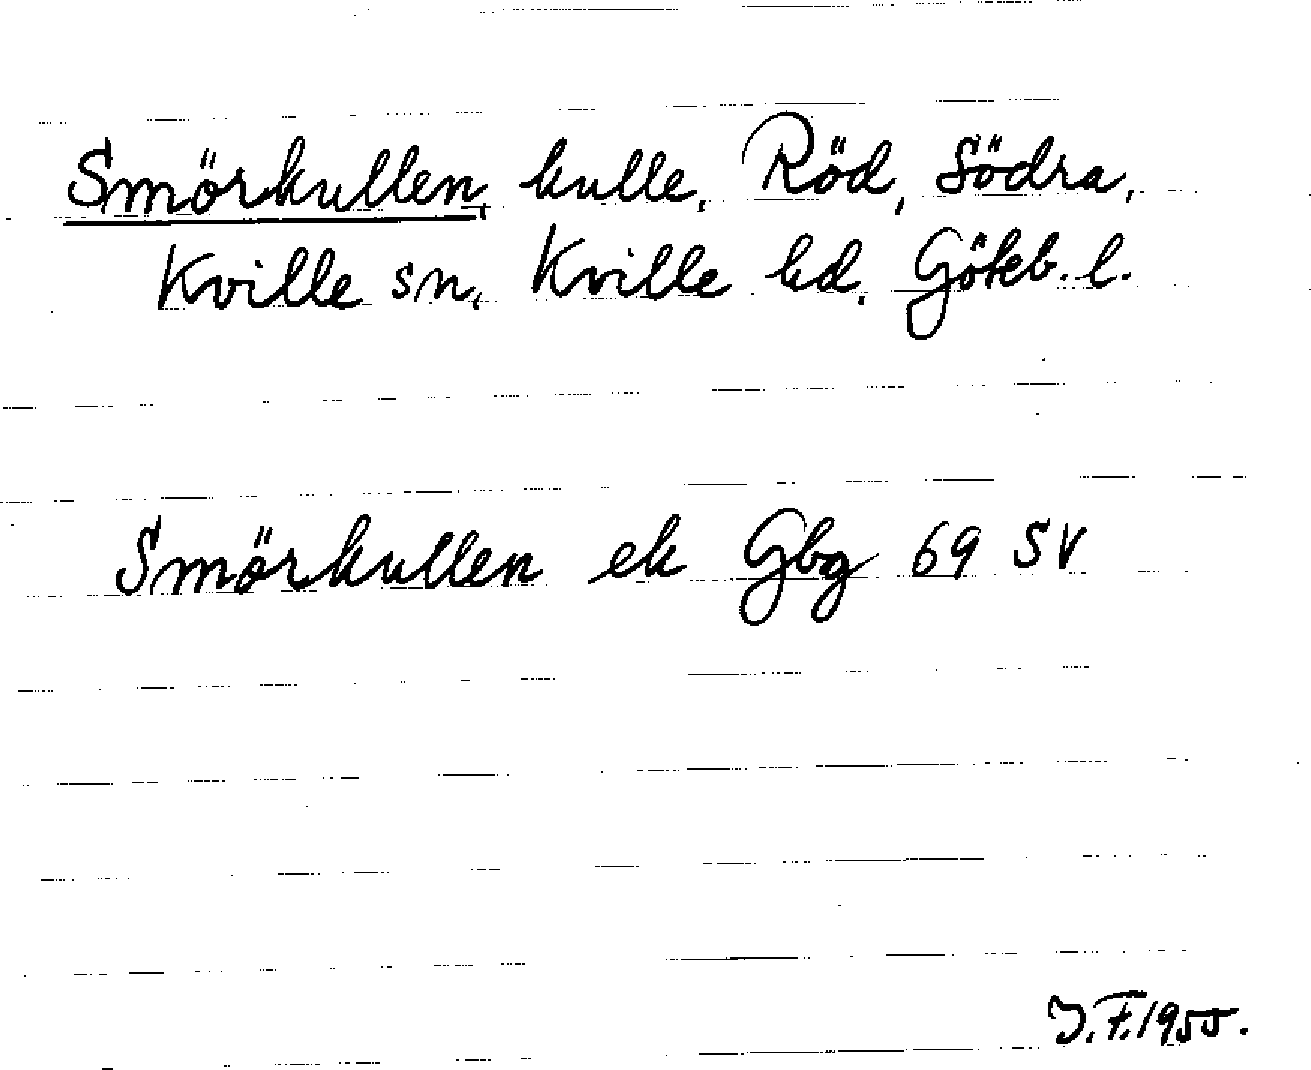 Smörkullen, kulle, Röd, Södra,
Kville sn, Kville hd, Göteb. l.
Smörkullen ek Gbg 69 SV
J.F. 1955.